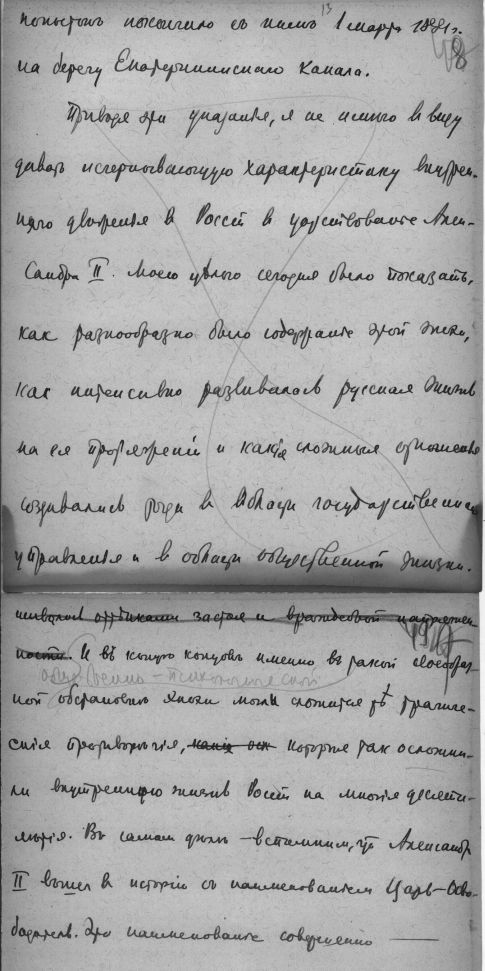 покончило съ нимъ 13 1 марта 1881 г.
48
на берегу Екатерининскаго канала.
Приводя эти указанія, я не имѣю въ виду
давать исчерпывающую характеристику внутрен-
няго движенія в Россіи в царствованіе Алек-
сандра II. Моею цѣлью сегодня было показать,
как разнообразно было содержаніе этой эпохи,
как интенсивно развивалась русская жизнь
на ея протяженіи и какія сложныя отношенія
создавались тогда в области государственнаго
управленія и в области общественной жизни.
застоя и враждебной напряжен-
ности. И въ концѣ концовъ именно въ такой своеобраз-
общественно-психологической
ной обстановкѣ эпохи могли сложиться тѣ трагиче-
скія противорѣчія, которыя так осложни-
ли внутреннюю жизнь Россіи на многія десяти-
лѣтія. Въ самом дѣлѣ - вспомним, что Александр
II вошел в исторію съ наименованіем Царь-Осво-
бодитель. Это наименованіе совершенно —